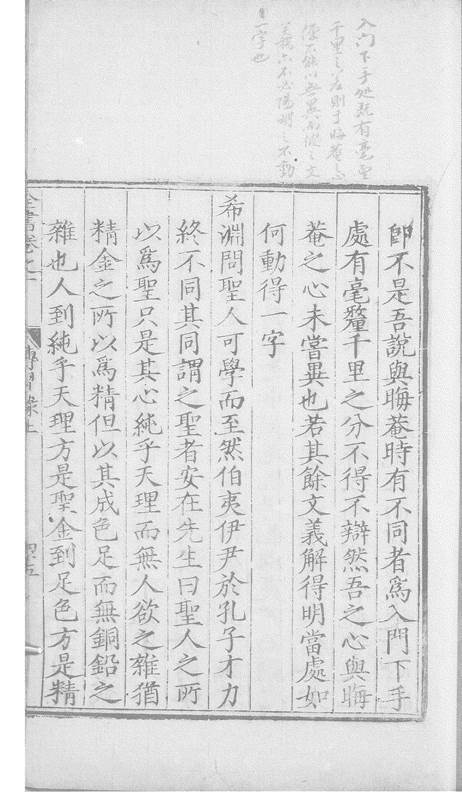 入門下手処既有毫厘
千里之差則於晦菴亦
不能以無異而彼之文
義亦不必陽明之不動
一字也
即不是吾說與晦菴時有不同者爲入門下手
處有毫釐千里之分不得不辯然吾之心與晦
菴之心未嘗異也若其餘文義解得明當處如
何動得一字
希淵問聖人可學而至然伯夷伊尹於孔子才力
終不同其同謂之聖者安在先生曰聖人之所
以爲聖只是其心純乎天理而無人欲之雜猶
精金之所以爲精但以其成色足而無銅鉛之
雜也人到純乎天理方是聖金到足色方是精
全書卷之一
傳習錄上
四五